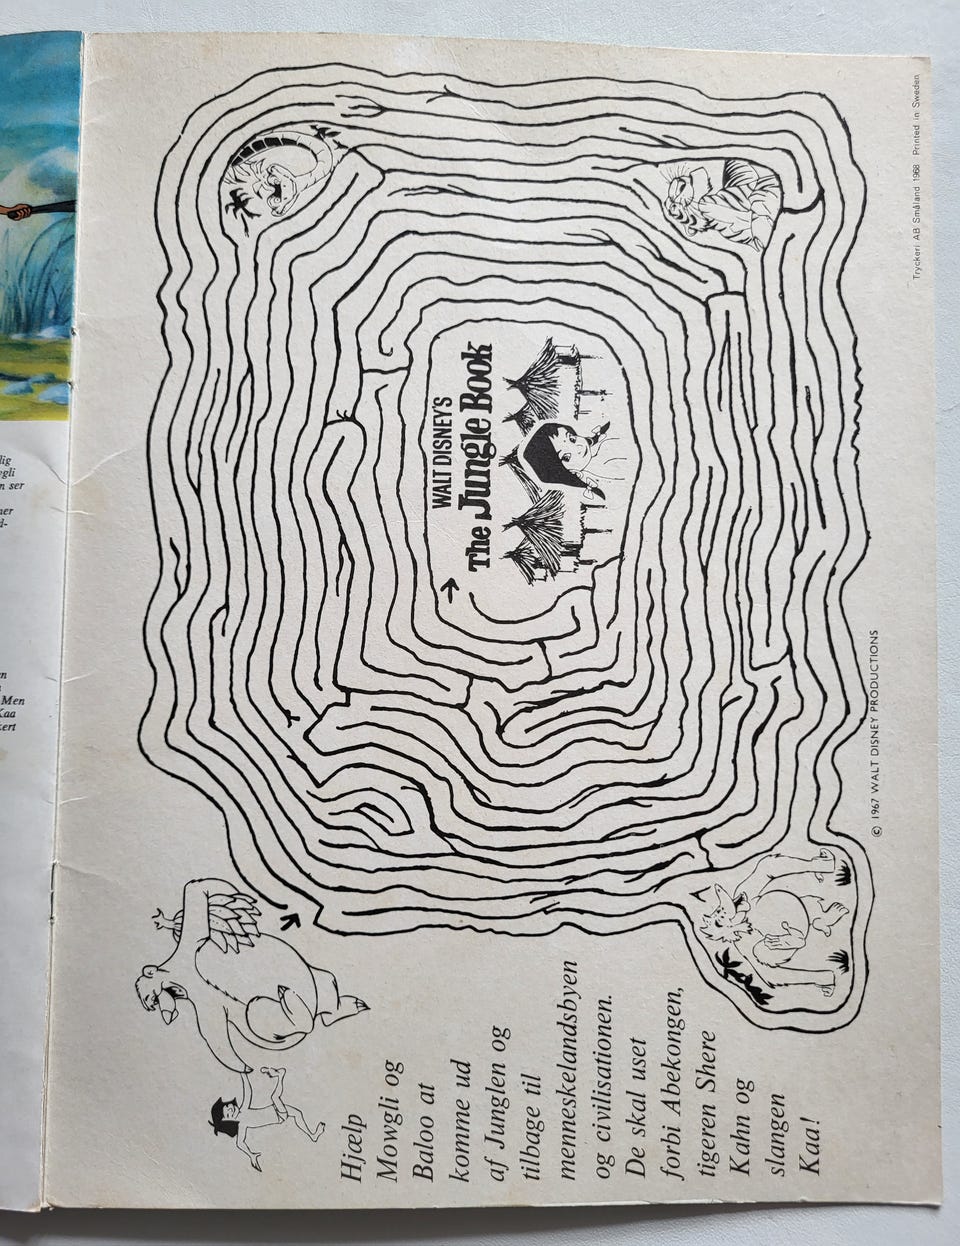 Hjælp
Mowgli og
Baloo at
komme ud
af Junglen og
tilbage til
menneskelandsbyen
og civilisationen.
De skal uset
forbi Abekongen,
tigeren Shere
Kahn og
slangen
Kaa!
WALT DISNEY'S
The Jungle Book
© 1967 WALT DISNEY PRODUCTIONS
Tryckeri AB Småland 1968 Printed in Sweden